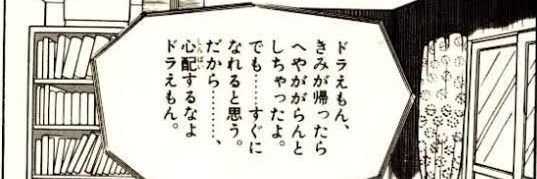 ドラえもん、
きみが帰ったら
へやががらんと
しちゃったよ。
でも……すぐに
なれると思う。
だから………、
心配するなよ
ドラえもん。